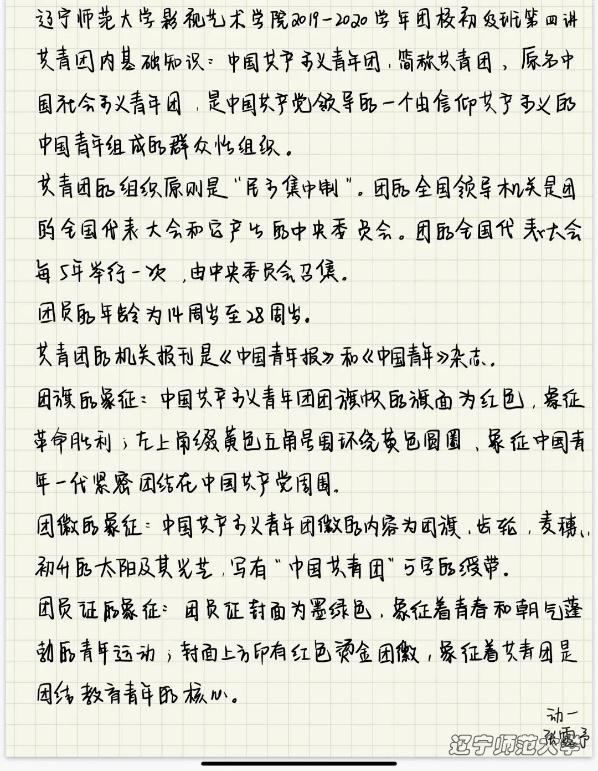 辽宁师范大学影视艺术学院2019-2020学年团校初级班第四讲
共青团内基础知识：中国共产主义青年团，简称共青团，原名中
国社会主义青年团，是中国共产党领导的一个由信仰共产主义的
中国青年组成的群众性组织。
共青团的组织原则是“民主集中制”。团的全国领导机关是团
的全国代表大会和它产生的中央委员会。团的全国代表大会
每5年举行一次，由中央委员会召集。
团员的年龄为14周岁至28周岁。
共青团的机关报刊是《中国青年报》和《中国青年》杂志。
团旗的象征：中国共产主义青年团团旗帜的旗面为红色，象征
革命胜利；左上角缀黄色五角星围环绕黄色圆圈，象征中国青
年一代紧密团结在中国共产党周围。
团徽的象征：中国共产主义青年团徽的内容为团旗，齿轮，麦穗，
初升的太阳及其光芒，写有“中国共青团”5字的绶带。
团员证的象征：团员证封面为墨绿色，象征着青春和朝气蓬
勃的青年运动；封面上方印有红色烫金团徽，象征着共青团是
团结教育青年的核心。
动一
张露予
辽宁师范大学